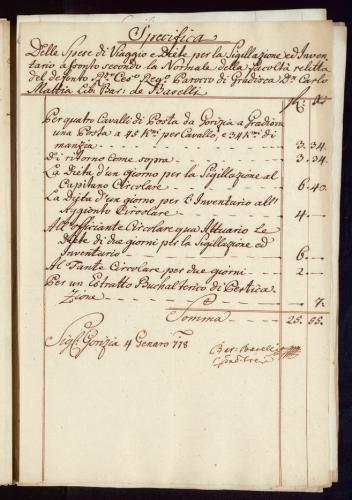 Specifica
Delle Spese di Viaggio e Diete per la Sigillazione ed Inven-
tario assonto secondo la Normale della facoltà relitta
dal defonto Parocco di Gradisca Dn. Carlo
Mattia Lib: Bar: de Baselli
f: Xr
Per quatro Cavalli di Posta da Gorizia a Gradisca
una Posta a 45 Kni per Cavallo, e 34 Kni di
manzia 3. 34.
Di ritorno come sopra 3. 34.
La Dieta d'un giorno per la Sigillazione al
Capitano Circolare 6. 40.
La Dieta d'un giorno per l'Inventario all'
Aggionto Circolare 4. —
All'officiante Circolare qua Attuario Le
Diete di due giorni per la Sigillazione ed
Inventario 6. —
Al Fante Circolare per due giorni 2. —
Per un Estratto Buchalterico di Pertica-
zione — 7.
Somma 25. 55.
Gorizia 4 Genaro 778
Bar: Baselli